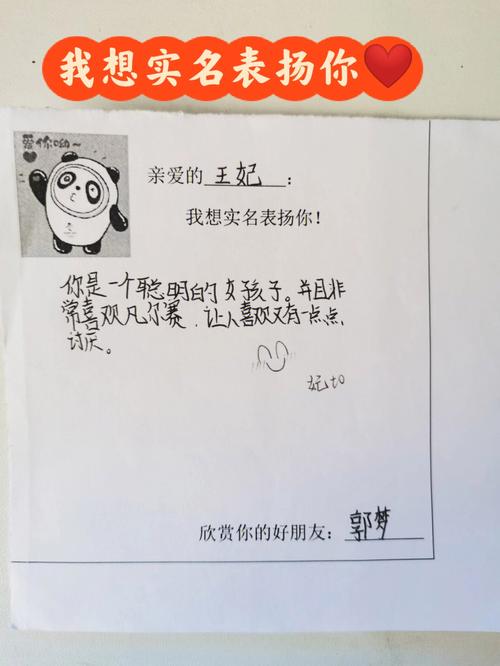 我想实名表扬你
爱你呦～
亲爱的 王妃 ：
我想实名表扬你！
你是一个聪明的女孩子。并且非
常喜欢凡尔赛，让人喜欢又有一点点
讨厌。
欣赏你的好朋友：郭梦